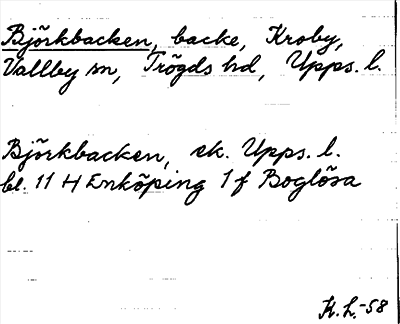 Björkbacken, backe, Kroby,
Vallby sn, Trögds hd, Upps. l.
Björkbacken, ek. Upps. l.
bl. 11 H Enköping 1 f Boglösa
H. L. -58